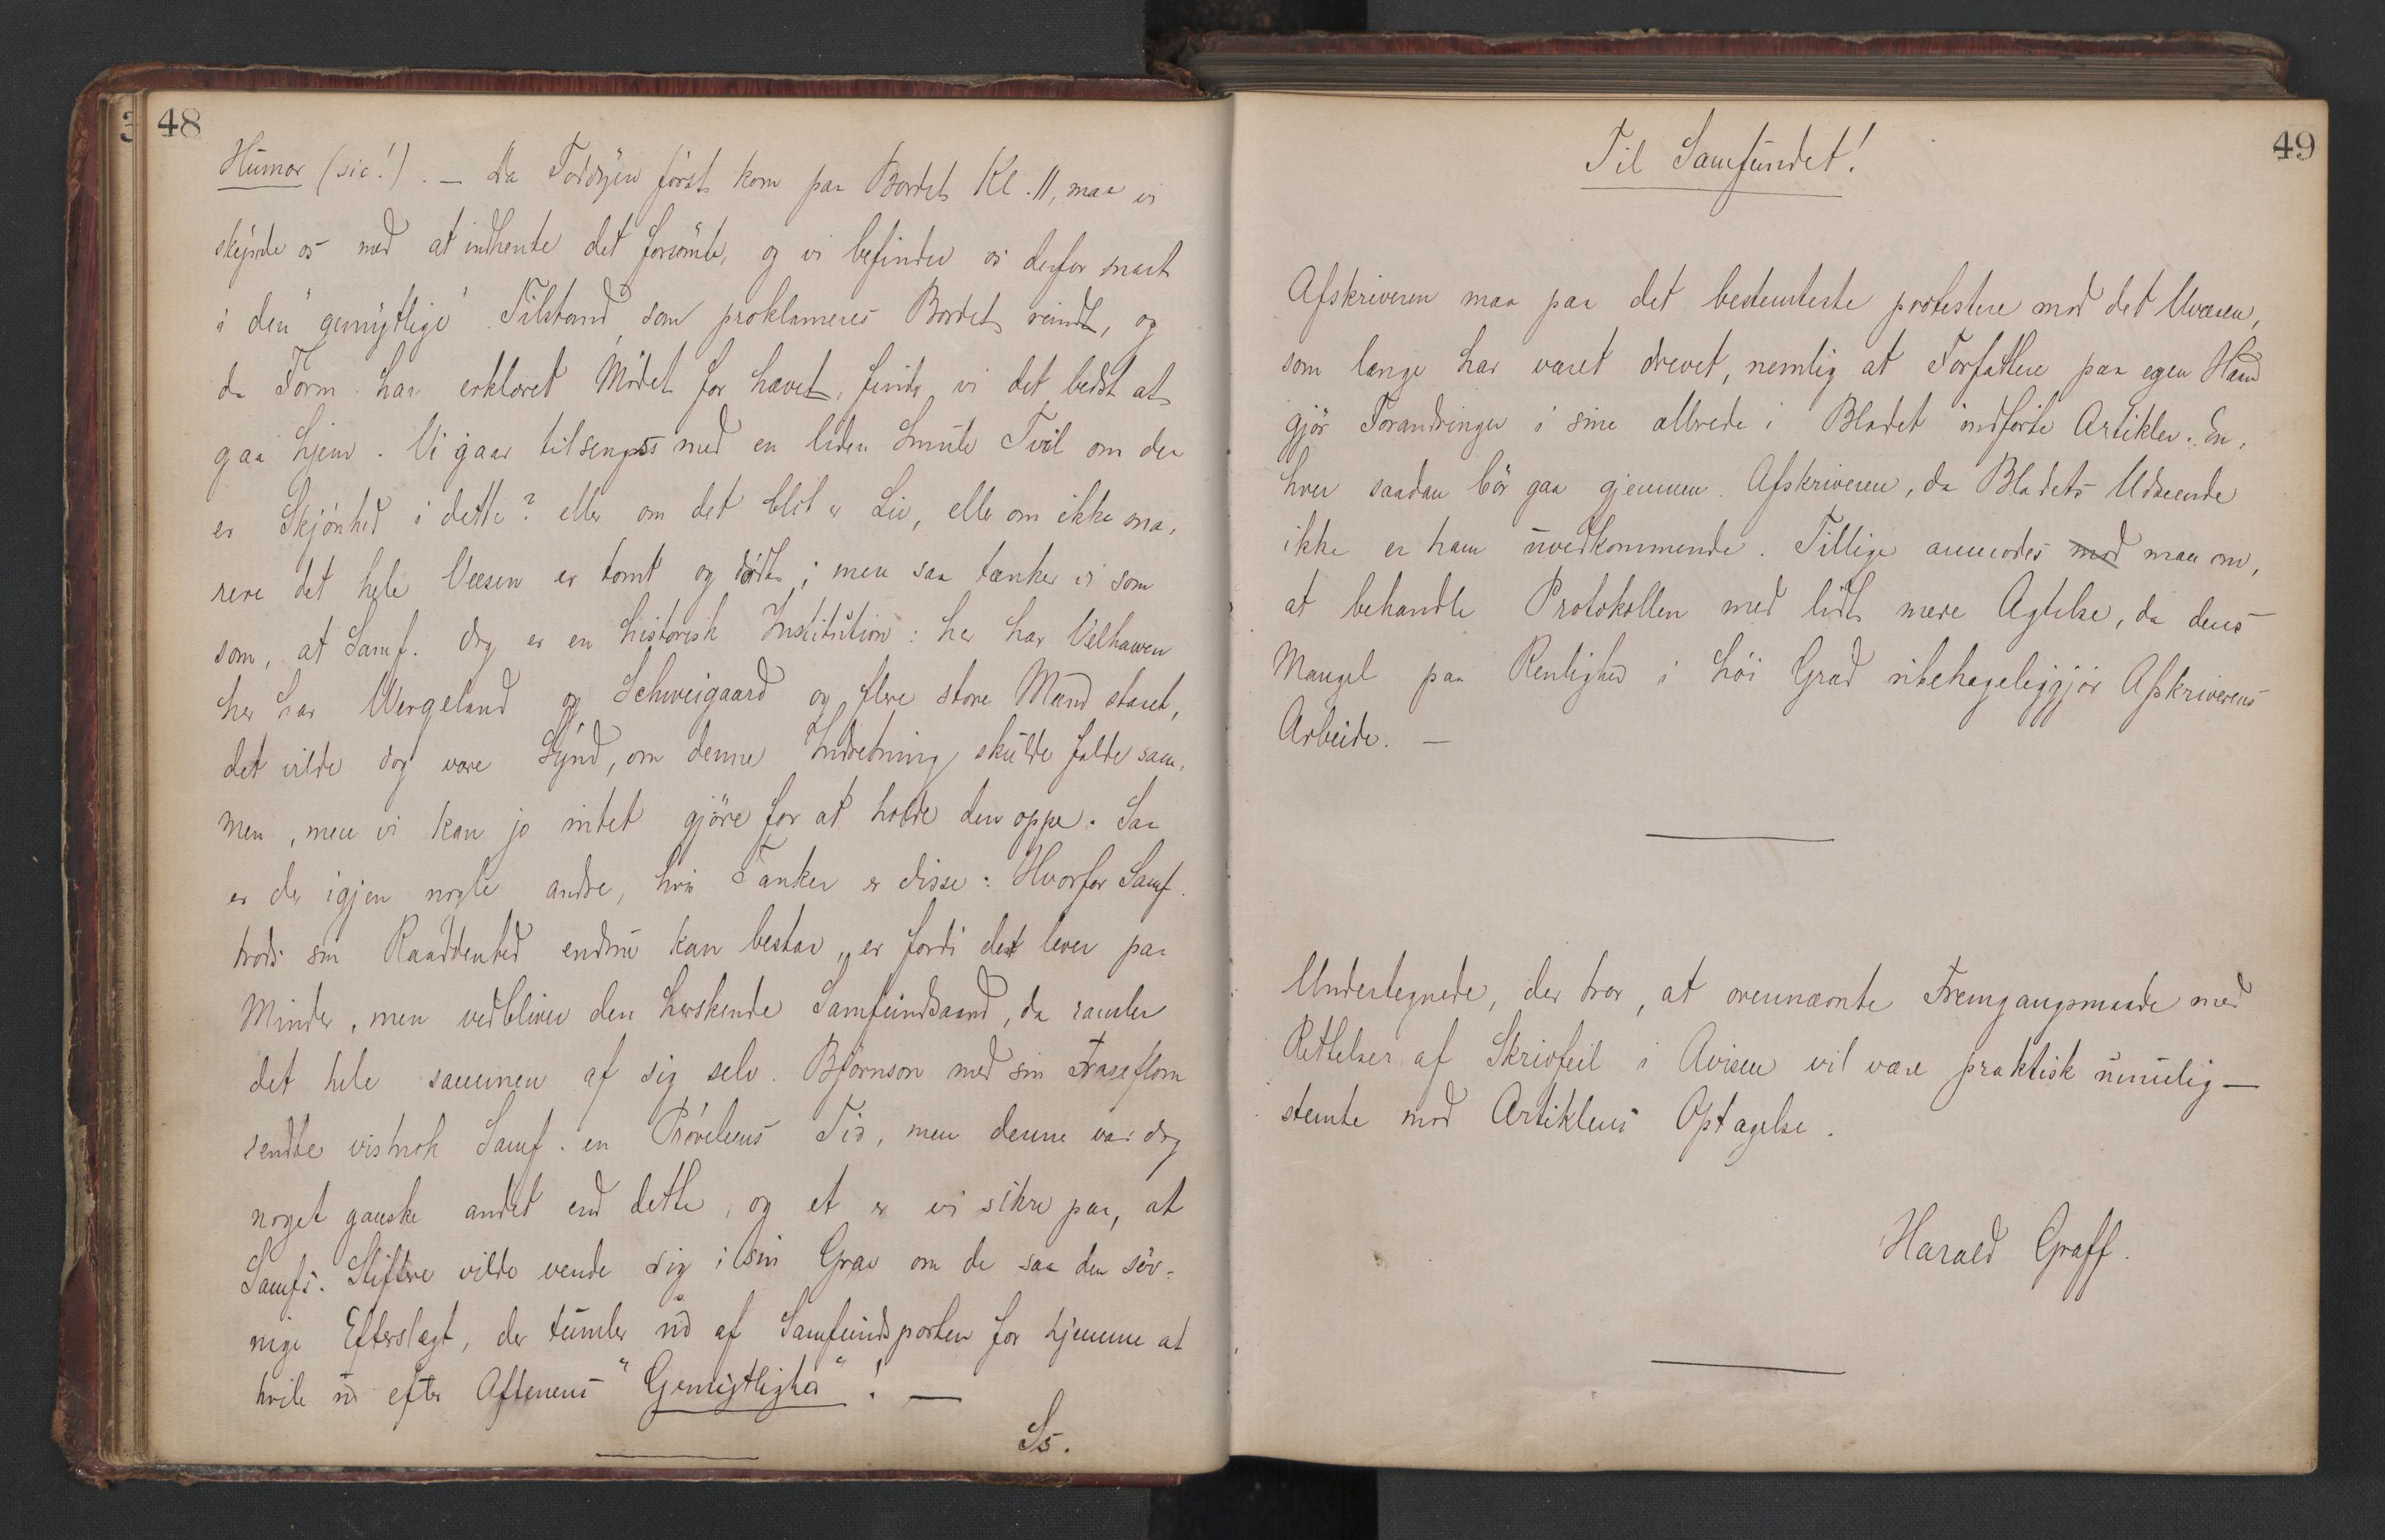 48
Humor (sic!). — Da Toddyen först kom paa Bordet Kl. 11, maa vi
skynde os med at indhente det forsömte, og vi befinder os derfor snart
i den "gemytlige" Tilstand, som proklameres Bordet rundt, og
da Form. har erklæret Mödet for hævet, finde vi det bedst at
gaa hjem. Vi gaar tilsengs med en liden Smule Tvil om der
er Skjönhed i dette? eller om det blot er Liv, eller om ikke sna-
rere det hele Væsen er tomt og dödt; men saa tænker vi som
som, at Samf. dog er en historisk Institution: her har Velhaven
her har Wergeland og Schweigaard og flere store Mænd staaet,
det vilde dog være Synd, om denne Indretning skulde falde sam-
men, men vi kan jo intet gjöre for at holde den oppe. Saa
er der igjen nogle andre, hvis Tanker er disse: Hvorfor Samf.
trods sin Raaddenhed endnu kan bestaa, er fordi det lever paa
Minder, men vedbliver den herskende Samfundsaand, da ramler
det hele sammen af sig selv. Björnson med sin Fraseflom
sendte vistnok Samf. en Prövelsens Tid, men denne var dog
noget ganske andet end dette, og et er vi sikre paa, at
Samfs. Stiftere vilde vende sig i sin Grav om de saa den söv-
nige Efterslægt, der tumler ud af Samfundsporten for hjemme at
hvile ud efter Aftenens "Gemytlighed"! —
Ss.
49
Til Samfundet!
Afskriveren maa paa det bestemteste protestere mod det Uvæsen,
som længe har været drevet, nemlig at Forfattere paa egen Haand
gjör Forandringer i sine allerede i Bladet indförte Artikler. En-
hver saadan bör gaa gjennem Afskriveren, da Bladets Udseende
ikke er ham uvedkommende. Tillige anmodes mod man om,
at behandle Protokollen med lidt mere Agtelse, da dens
Mangel paa Renlighed i höi Grad ubehageliggjör Afskriverens
Arbeide. —
Undertegnede, der tror, at ovennævnte Fremgangsmaade med
Rettelser af Skrivfeil i Avisen vil være praktisk umulig —
stemte mod Artiklens Optagelse.
Harald Graff.